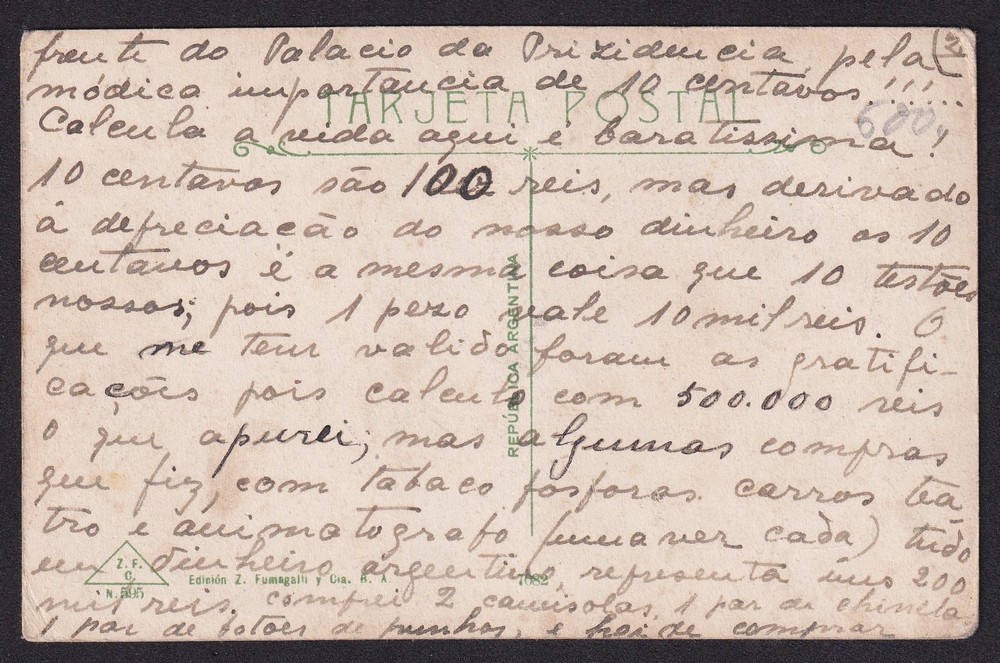 frente do Palacio da Prizidencia, pela
módica importancia de 10 centavos!!!...
TARJETA POSTAL
Calcula a vida aqui é baratissima!
600
10 centavos são 100 reis, mas derivado
á depreciação do nosso dinheiro os 10
centavos é a mesma coisa que 10 testões
nossos; pois 1 pezo vale 10 mil reis. O
que me tem valido foram as gratifi-
cações pois calculo com 500.000 reis
o que apurei; mas algumas compras
que fiz, com tabaco fosforos carros tea-
tro e animatografo (uma ver cada) tudo
em dinheiro argentino, representa uns 200
mil reis. comprei 2 camisolas, 1 par de chinela
1 par de botões de punhos, e hei de comprar
REPÚBLICA ARGENTINA
Z. F.
C.
N. 595
Edición Z. Fumagalli y Cia. B. A.
7082